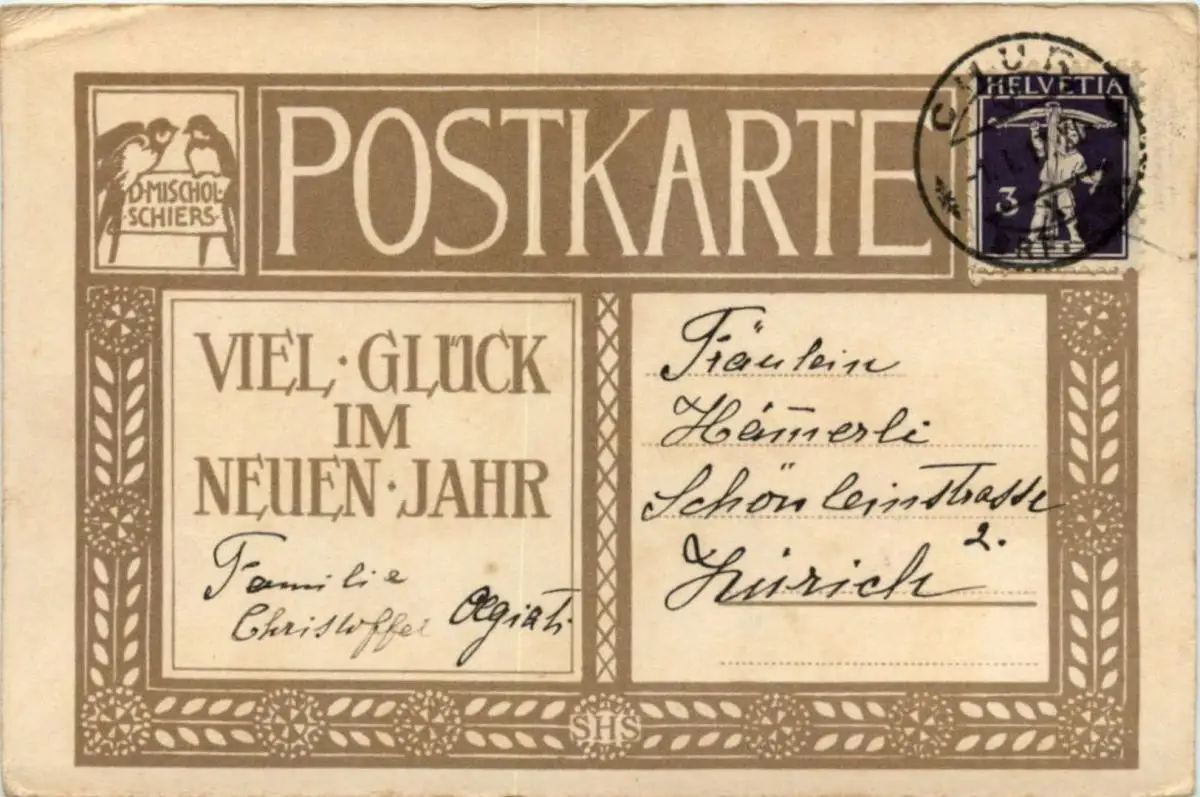 D·MISCHOL·
·SCHIERS·
POSTKARTE
CHUR
HELVETIA
3
VIEL·GLÜCK
IM
NEUEN·JAHR
Familie
Christoffel
Fräulein
Häm̅erli
Schönleinstrasse
2.
Zürich
SHS